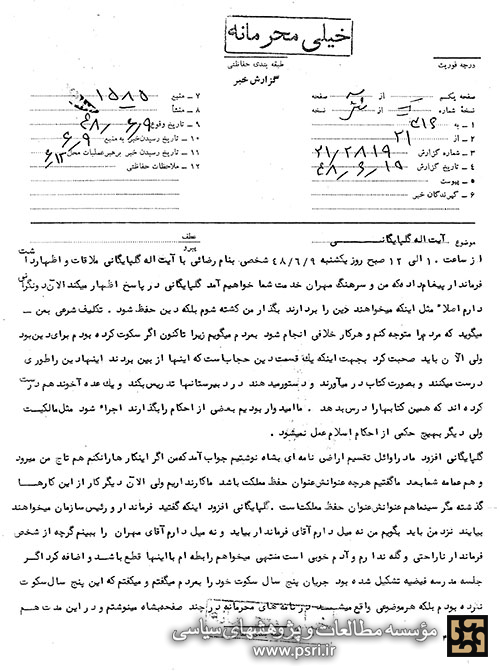 خیلی محرمانه
درجه فوریت
طبقه بندی حفاظتی
گزارش خبر
صفحه یکم از صفحه
نسخه شماره از نسخه
۱ ـ به ۳۱۶
۲ ـ از ۲۱
۳ ـ شماره گزارش ۲۱/۲۸۱۹
۴ ـ تاریخ گزارش ۴۸/۶/۱۹
۵ ـ پیوست
۶ ـ گیرندگان خبر
۷ ـ منبع ۱۵۸۵
۸ ـ منشأ
۹ ـ تاریخ وقوع ۴۸/۶/۹
۱۰ ـ تاریخ رسیدن خبر به منبع ۶/۹
۱۱ ـ تاریخ رسیدن خبر به رهبر عملیات محل ۶/۱۳
۱۲ ـ ملاحظات حفاظتی
موضوع آیت اله گلپایگانی
عطف
پیرو
از ساعت ۱۰ الی ۱۲ صبح روز یکشنبه ۴۸/۶/۹ شخصی بنام رضائی با آیت اله گلپایگانی ملاقات و اظهار داشت
فرماندار پیغام داده که من و سرهنگ مهران خدمت شما خواهیم آمد گلپایگانی در پاسخ اظهار میکند الان دو نگرانی
دارم اصلا مثل اینکه میخواهند دین را بردارند بگذار من کشته شوم بلکه دین حفظ شود . تکلیف شرعی بمن
میگوید که مردم را متوجه کنم و هر کار خلافی انجام شود بمردم میگویم زیرا تاکنون اگر سکوت کرده بودم برای دین بود
ولی الان باید صحبت کرد بجهت اینکه یک قسمت دین حجاب است که اینها از بین بردند اینها دین را طوری
درست میکنند و بصورت کتاب در میآورند و دستور میدهند در دبیرستانها تدریس بکند و یک عده آخوند هم درست
کرده اند که همین کتابها را درس بدهد . ما امیدوار بودیم بعضی از احکام را بگذارند اجراء شود مثل مالکیت
ولی دیگر بهیچ حکمی از احکام اسلام عمل نمیشود .
گلپایگانی افزود ما در اوائل تقسیم اراضی نامه ای بشاه نوشتیم جواب آمد که من اگر اینکارها را نکنم هم تاج من میرود
و هم عمامه شما بعد ما گفتیم هرچه عنوانش عنوان حفظ مملکت باشد ما کار نداریم ولی الان دیگر کار از این کارها
گذشته مگر سینما هم عنوانش عنوان حفظ مملکت است . گلپایگانی افزود اینکه گفتید فرماندار و رئیس سازمان میخواهند
بیایند نزد من باید بگویم من نه میل دارم آقای فرماندار بیاید و نه میل دارم آقای مهران را ببینم گرچه از شخص
فرماندار ناراحتی و گله ندارم و آدم خوبی است منتهی میخواهم رابطه ام با اینها قطع باشد و اضافه کرد اگر
جلسه مدرسه فیضیه تشکیل شده بود جریان پنج سال سکوت خود را بمردم میگفتم و میگفتم که این پنج سال سکوت
نکرده بودم بلکه هر موضوعی واقع میشد در نامه های محرمانه در چند صفحه بشاه مینوشتم و در این مدت هم
مؤسسه مطالعات و پژوهشهای سیاسی
www.psri.ir